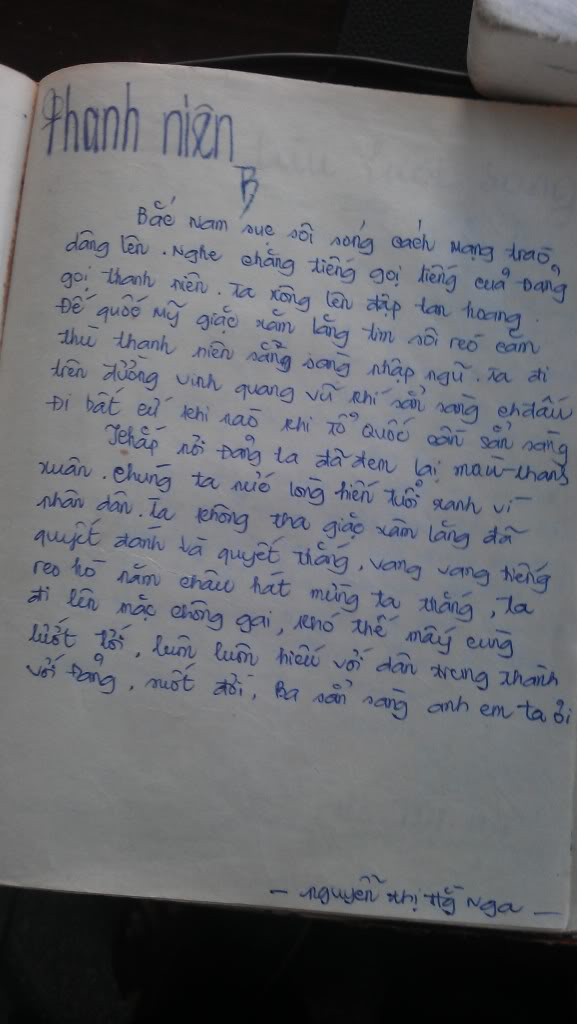 Thanh niên
B
Bắc Nam sục sôi sóng cách mạng trào
dâng lên. Nghe chăng tiếng gọi tiếng của Đảng
gọi thanh niên. Ta xông lên đập tan hoang.
Đế quốc Mỹ giặc xâm lăng tim sôi reo căm
thù thanh niên sẵng sàng nhập ngũ. Ta đi
trên đường vinh quang vũ khí sẵn sàng chđấu
Đi bất cứ khi nào khi Tổ Quốc cần sẵn sàng
Khắp nơi Đảng ta đã đem lại màu-thanh
xuân. Chúng ta nức lòng hiến tuổi xanh vì
nhân dân. Ta không tha giặc xâm lăng đã
quyết đánh là quyết thắng, vang vang tiếng
reo hò năm châu hát mừng ta thắng, ta
đi lên mặc chông gai, khó thế mấy cũng
lướt tới, luôn luôn hiếu với dân trung thành
với Đảng, suốt đời, Ba sẵn sàng anh em ta ơi
- Nguyễn Thị Hg Nga -